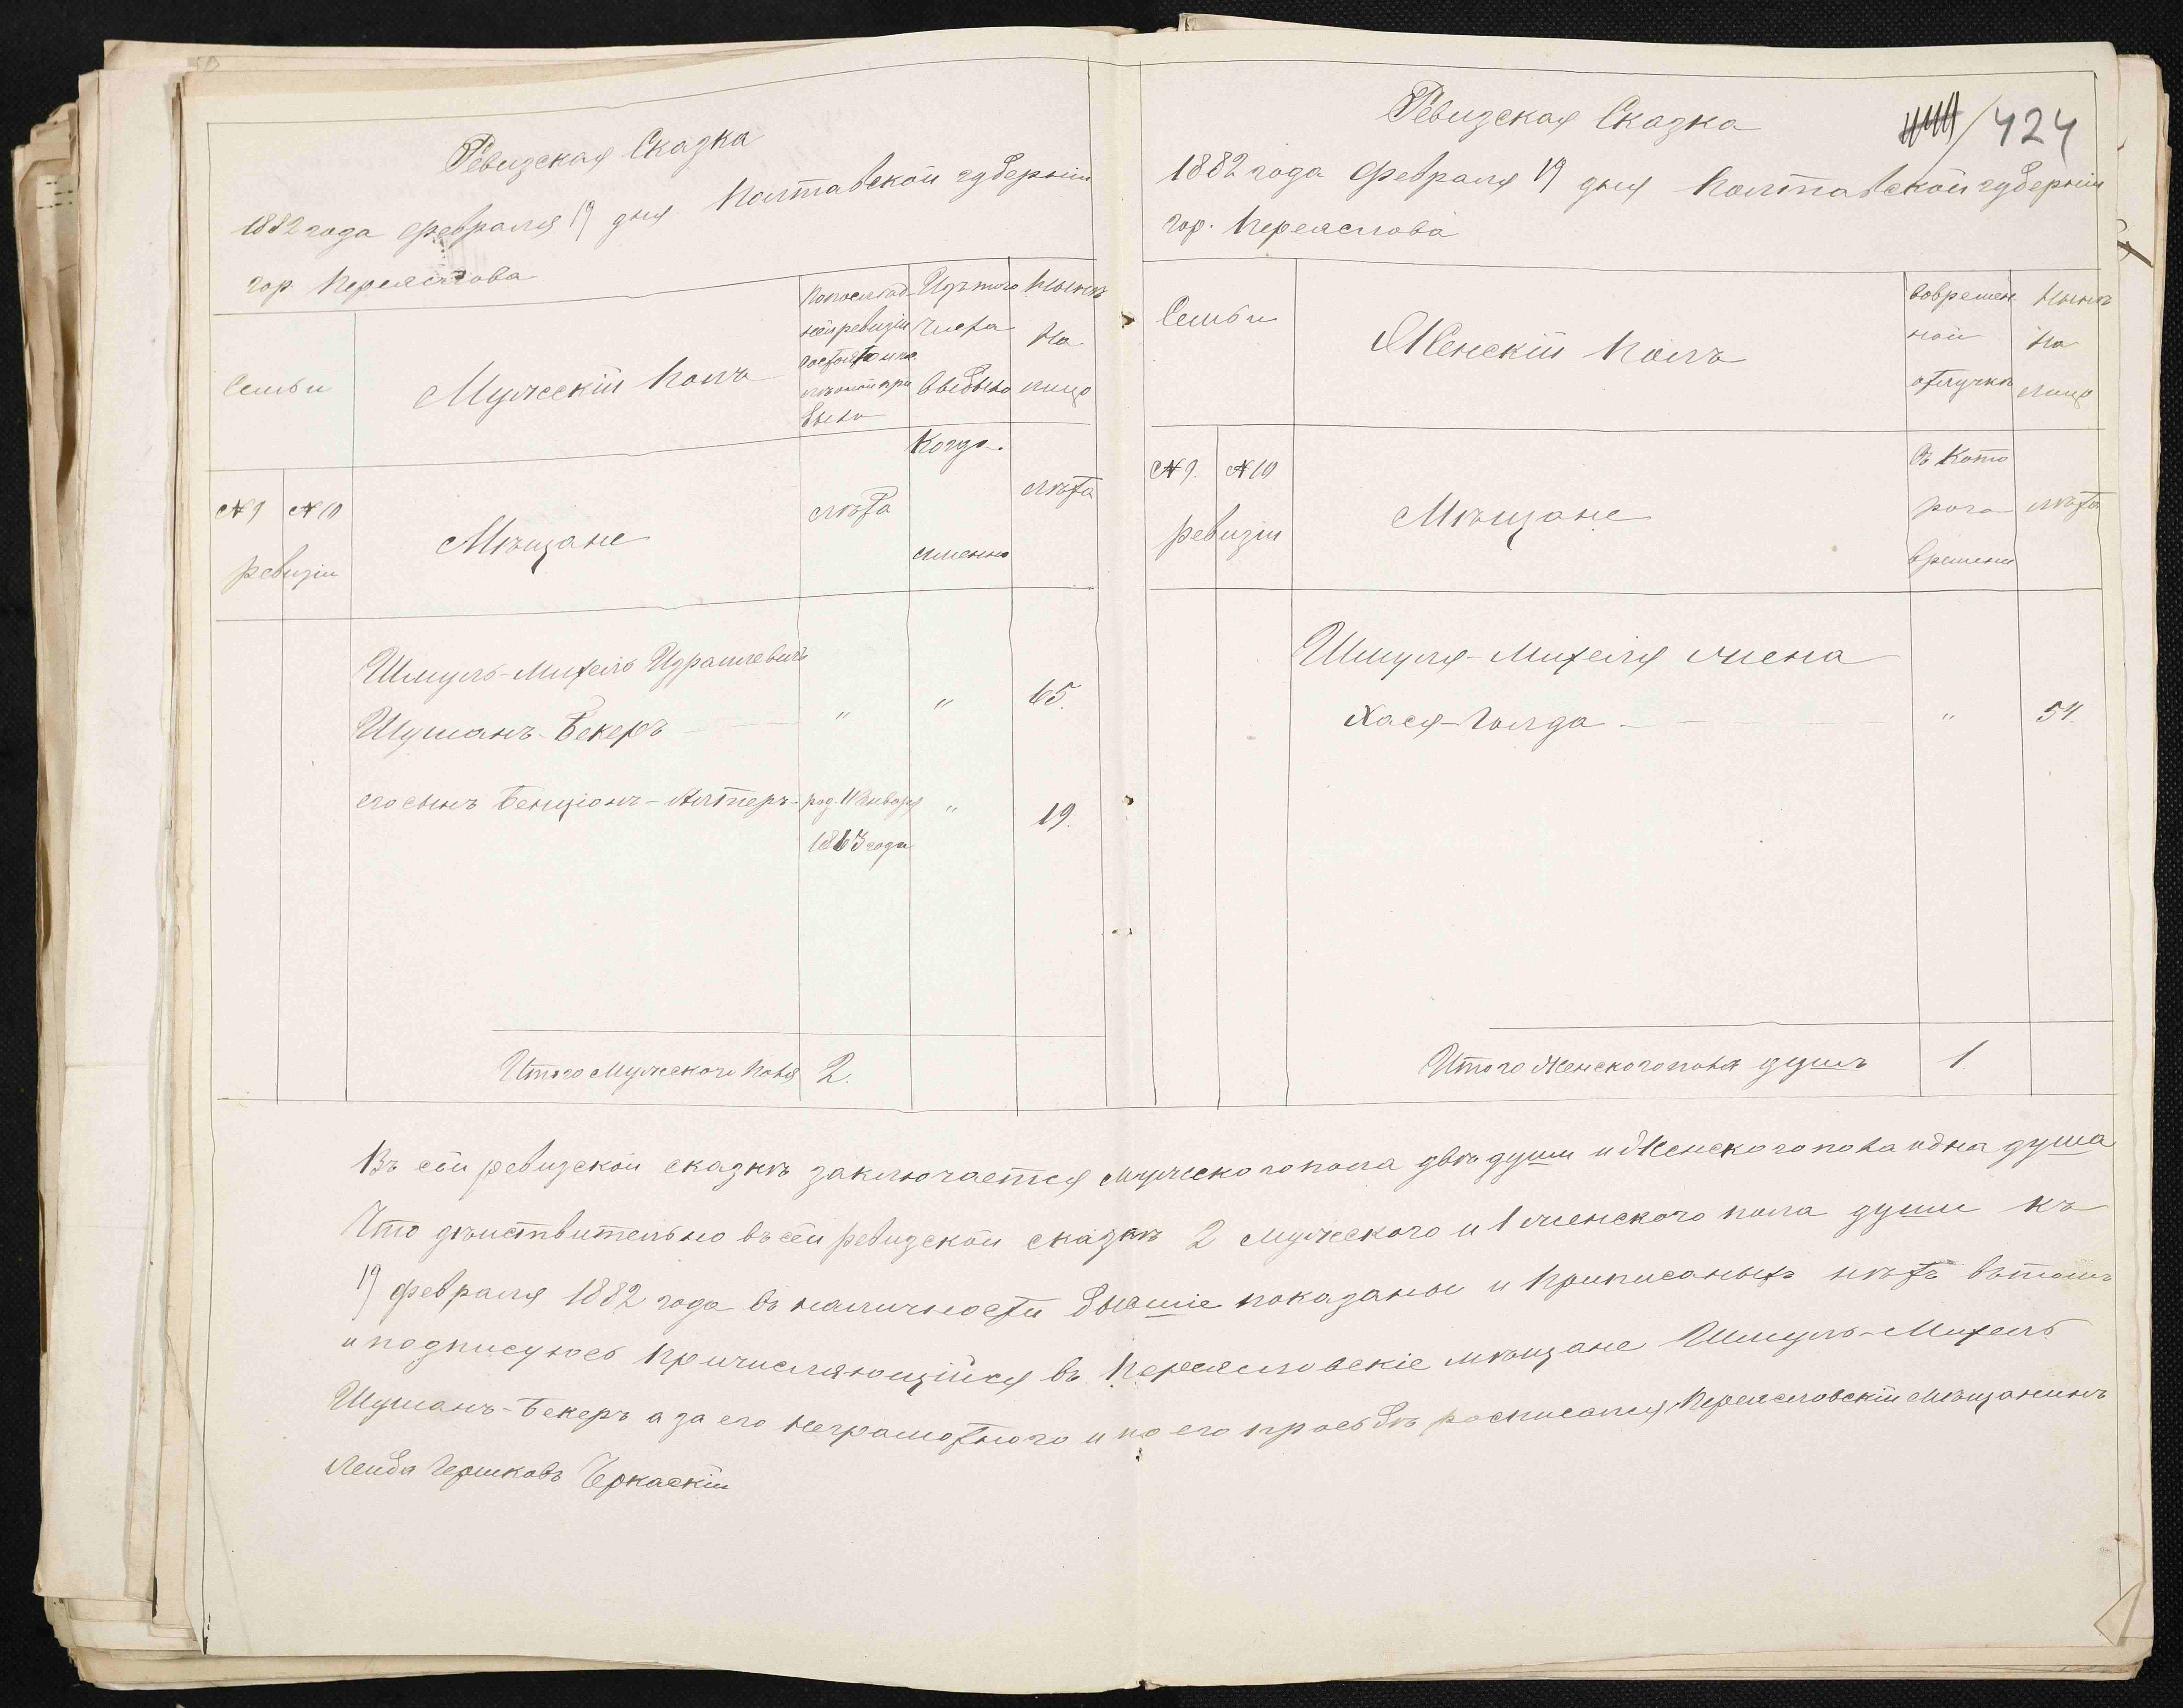 Ревизская Сказка
1882 года февраля 19 дня Полтавской губернiи
гор. Переяслова
Семьи
Мужескiй полъ
По послѣд
ней ревизiи
состояло и по
слѣ оной при
было
Изъ того
числа
выбыло
Нынѣ
на
лицо
Когда
именно
№ 9
№ 10
ревизiи
Мѣщане
лѣта
лѣта
Шмуль-Михель Израилевичъ
Шуманъ-Бекеръ — " " 65.
его сынъ Бенцiонъ-Алтеръ- род. 11 Января " 19.
1863 года
Итого Мужескаго пола 2.
424
Ревизская Сказка
1882 года Февраля 19 дня Полтавской губернiи
гор. Переяслова
Семьи
Женскiй полъ
Во времен
ной
отлучкѣ
Нынѣ
на
лицо
№ 9.
№ 10
ревизiи
Мѣщане
Съ кото
рого
времени
лѣта
Шмуля-Михеля жена
Хася-Голда — " 54.
Итого Женского пола душъ 1
Въ сей ревизской сказкѣ заключается мужеского пола двѣ души и Женского пола одна душа
Что дѣйствительно въ сей ревизской сказкѣ 2 мужеского и 1 женского пола души къ
19 февраля 1882 года въ наличности бывшiе показаны и прописаныхъ нѣтъ въ томъ
и подписуюсь причисляющiйся въ Переясловскiе мѣщане Шмуль-Михель
Шуманъ-Бекеръ а за его неграмотного и по его просьбѣ росписался Переясловскiй мѣщанинъ
Лейба Гершковъ Черкаскiй